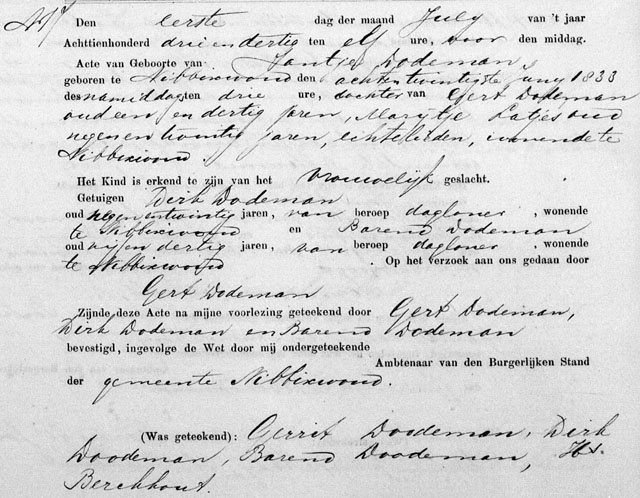 Den eerste dag der maand July van 't jaar
Achttienhonderd drieendertig ten elf ure, voor den middag.
Acte van Geboorte van Jantje Dodeman,
geboren te Nibbixwoud den achtentwintigste juny 1833
des namiddag ten drie ure, dochter van Gert Dodeman
oud een en dertig jaren, Marytje Latjes oud
negenentwintig jaren, echtelieden, wonende te
Nibbixwoud.
Het Kind is erkend te zijn van het Vrouwelijk geslacht.
Getuigen Dirk Dodeman
oud negenentwintig jaren, van beroep dagloner, wonende
te Nibbixwoud en Barend Dodeman
oud vijfendertig jaren, van beroep dagloner, wonende
te Nibbixwoud. Op het verzoek aan ons gedaan door
Gert Dodeman
Zijnde deze Acte na mijne voorlezing geteekend door Gert Dodeman,
Dirk Dodeman en Barend Dodeman
bevestigd, ingevolge de Wet door mij ondergeteekende
Ambtenaar van den Burgerlijken Stand
der gemeente Nibbixwoud.
(Was geteekend): Gerrit Doodeman, Dirk
Doodeman, Barend Doodeman,
Berckhout.